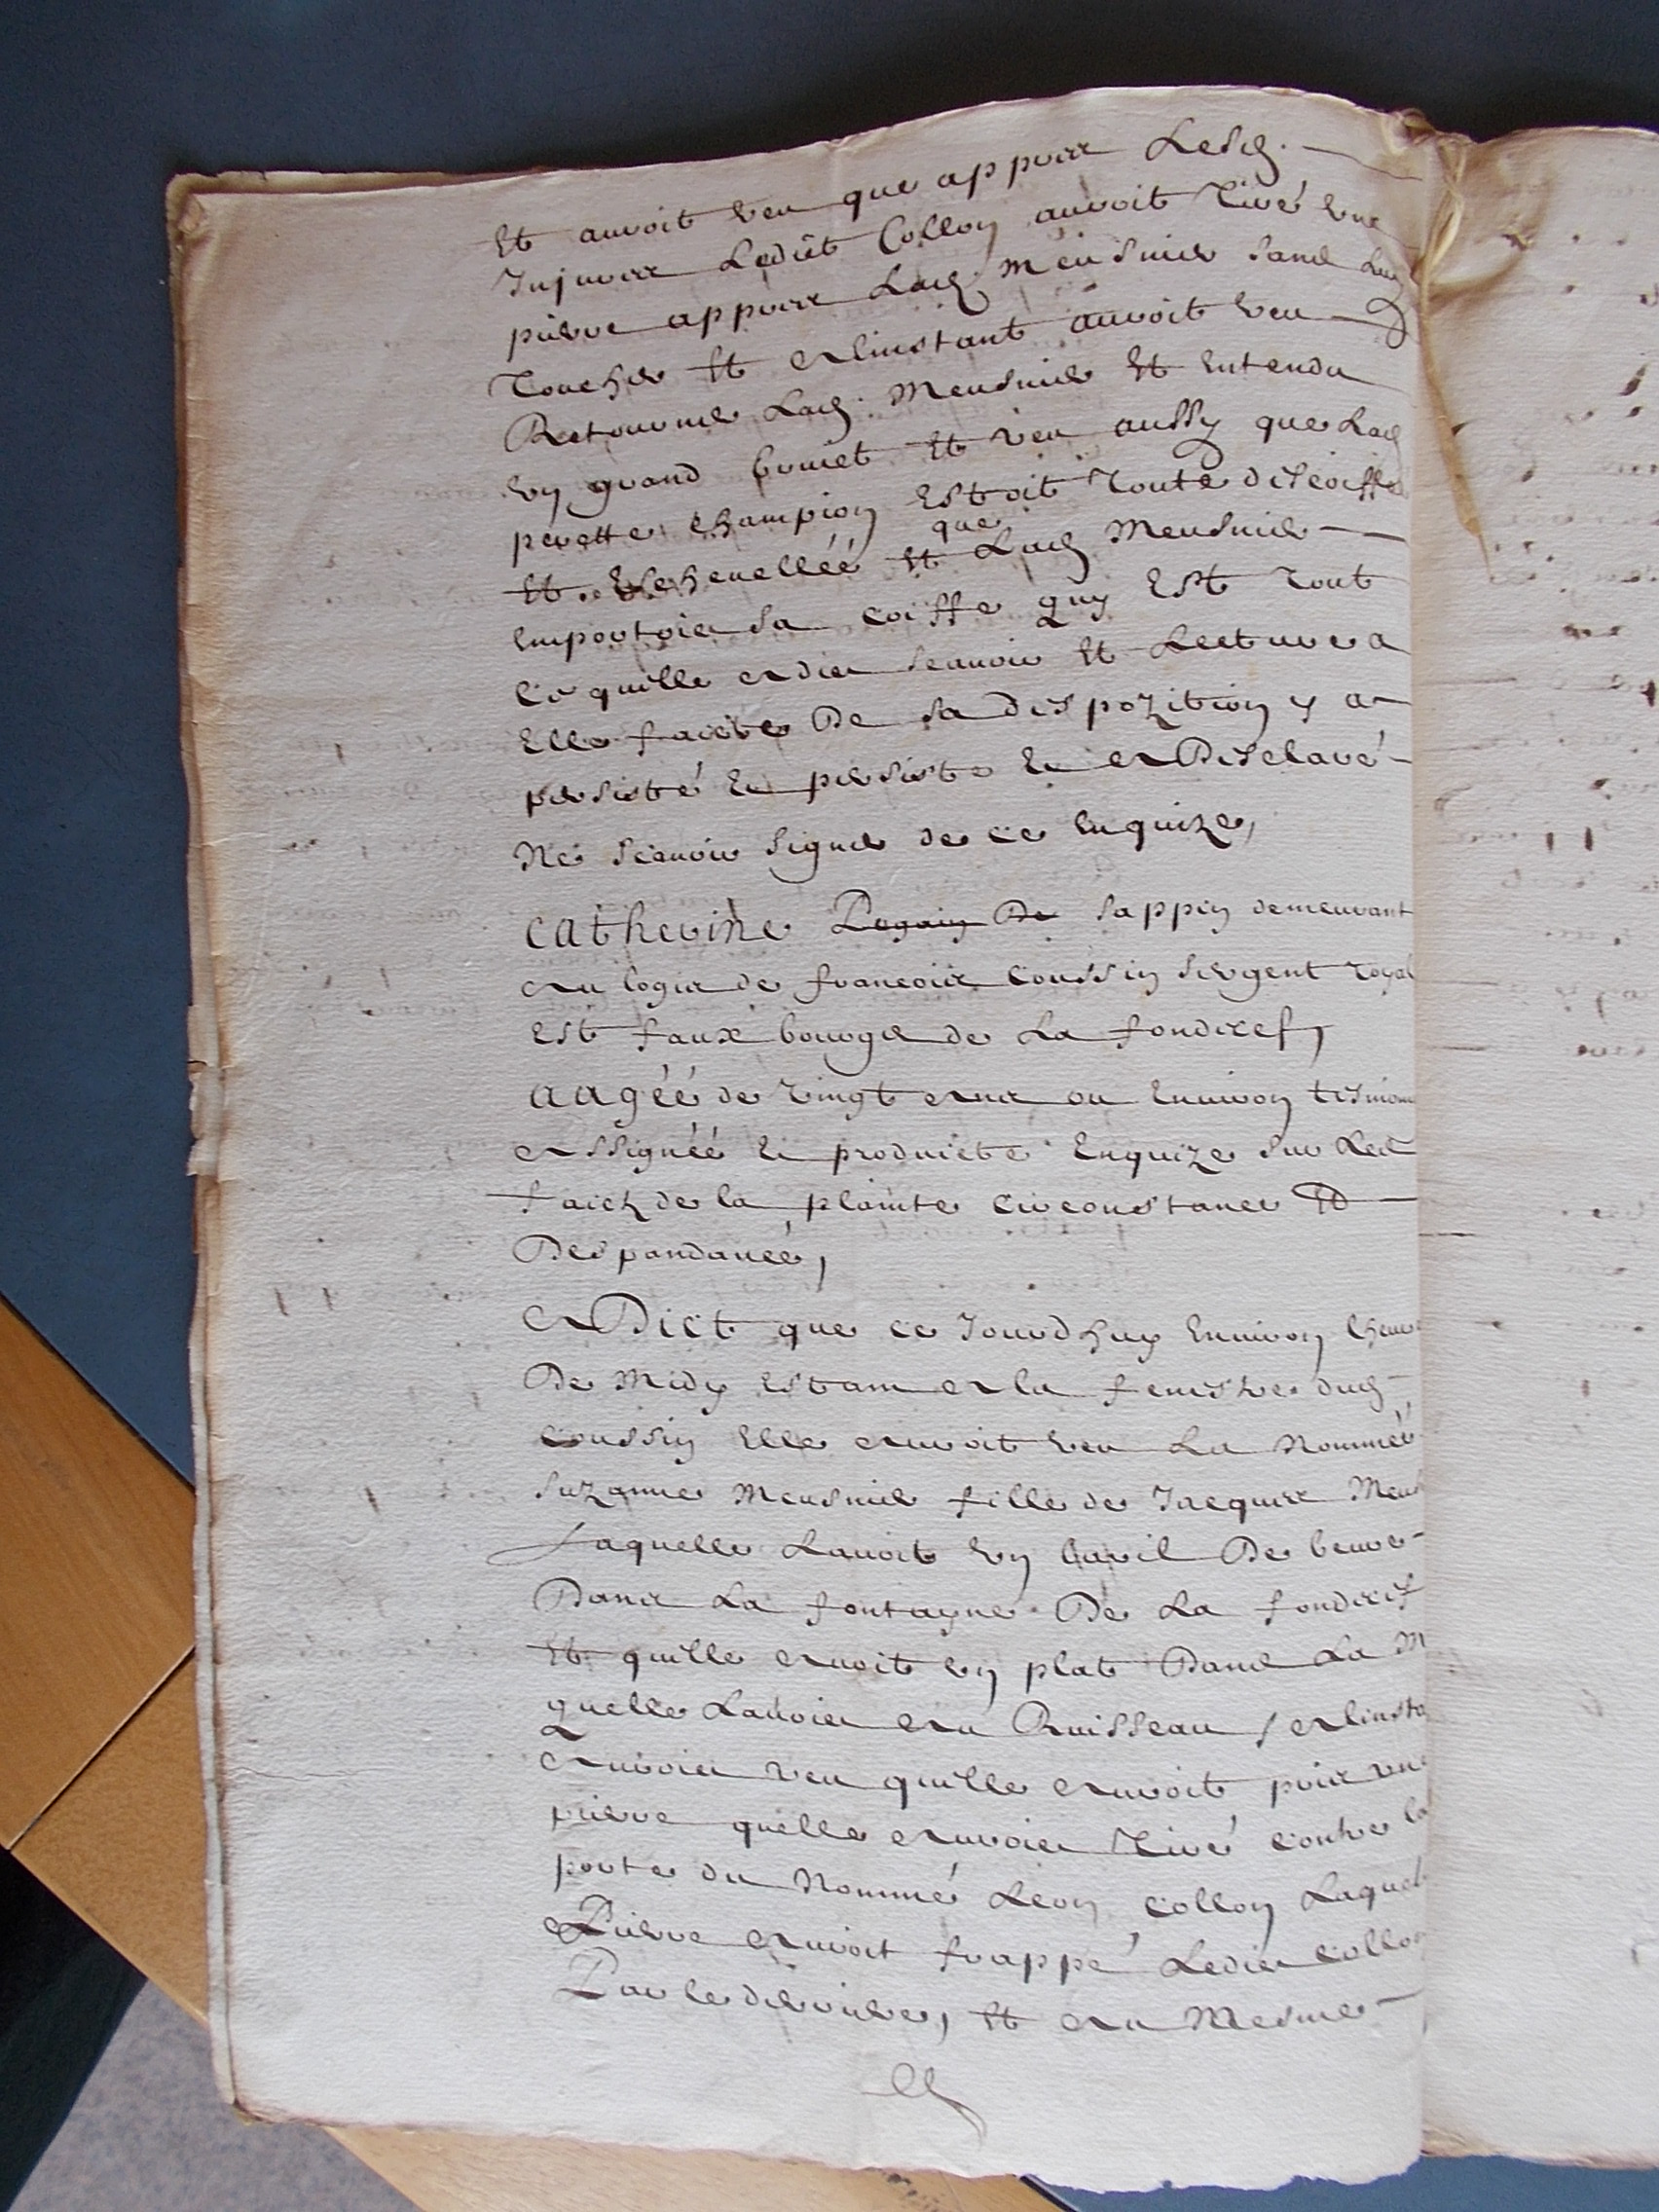 Et auvoit veu que appres Lesd.
Injures Ledict Collon auvoit Tiré vne
pierre appres Lad. Meusnier sans Luy
Toucher Et a linstant auvoit veu
Retourner Lad. Meusnier Et Entendu
vn grand bruict Et veu aussy que Lad
perette Champion Estoit Toute discoiffée
Et Eschevellée Et que Lad Meusnier
Emportoit sa coiffe quy Est Tout
Ce quelle a dict scauoir Et Lecture a
Elle faicte De sa dispozition y a
persisté Et persiste Et a Desclaré
Ne scauoir signer de ce Enquize,
Catherine De Sappin demeurant
au logis de francois Coussin sergent royal
Est faux bourgs de La fondixes,
aagéé de vingt ans ou Enuiron tesmoin
assignéé Et produicte Enquize sur Led
faictz de la plainte circonstances Et
Despandances,
A Dict que ce Jourdhuy Enuiron lheure
De Midy Estant a la fenestre dud
Coussin Elle auvoit veu La Nommée
Suzanne Meusnier fille de Jacques Meus
Laquelle Lauoit vn baril De beure
Dans La fontayne De La fondixes
Et quelle auoit vn plat Dans La M
quelle Lauoit au Ruisseau / a linsta
auvoit veu quelle auvoit pris vne
pierre quelle auvoit Tiré contre la
porte du Nommé Leon Collon Laquel
Pierre auvoit frappé Ledict Collon
Par le derriere, Et au Mesme